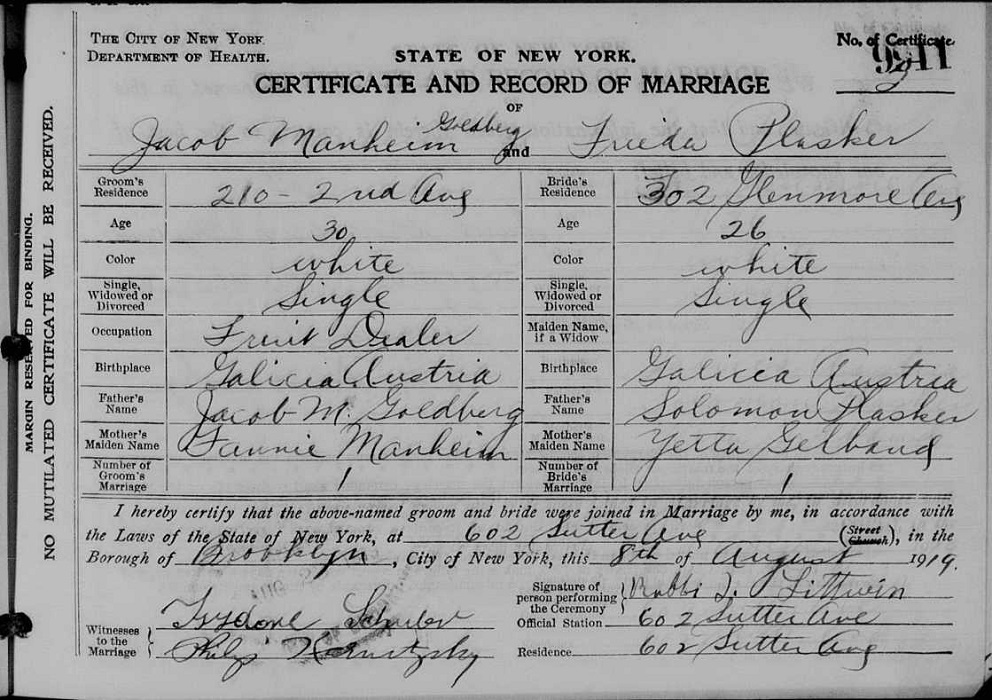 THE CITY OF NEW YORK
DEPARTMENT OF HEALTH.
STATE OF NEW YORK.
No. of Certificate
CERTIFICATE AND RECORD OF MARRIAGE
OF
Jacob Manheim Goldberg and Frieda Plasker
Groom's Residence 210 - 2nd Ave Bride's Residence 302 Glenmore Ave
Age 30 Age 26
Color white Color white
Single, Widowed or Divorced Single Single, Widowed or Divorced Single
Occupation Fruit Dealer Maiden Name, if a Widow
Birthplace Galicia Austria Birthplace Galicia Austria
Father's Name Jacob M. Goldberg Father's Name Solomon Plasker
Mother's Maiden Name Fannie Manheim Mother's Maiden Name Yetta Gelband
Number of Groom's Marriage 1 Number of Bride's Marriage 1
I hereby certify that the above-named groom and bride were joined in Marriage by me, in accordance with
the Laws of the State of New York, at 602 Sutter Ave (Street Church), in the
Borough of Brooklyn, City of New York, this 8th of August 1919.
Signature of person performing the Ceremony Rabbi J. Littwin
Witnesses to the Marriage
Official Station 602 Sutter Ave
Residence 602 Sutter Ave
MARGIN RESERVED FOR BINDING.
NO MUTILATED CERTIFICATE WILL BE RECEIVED.